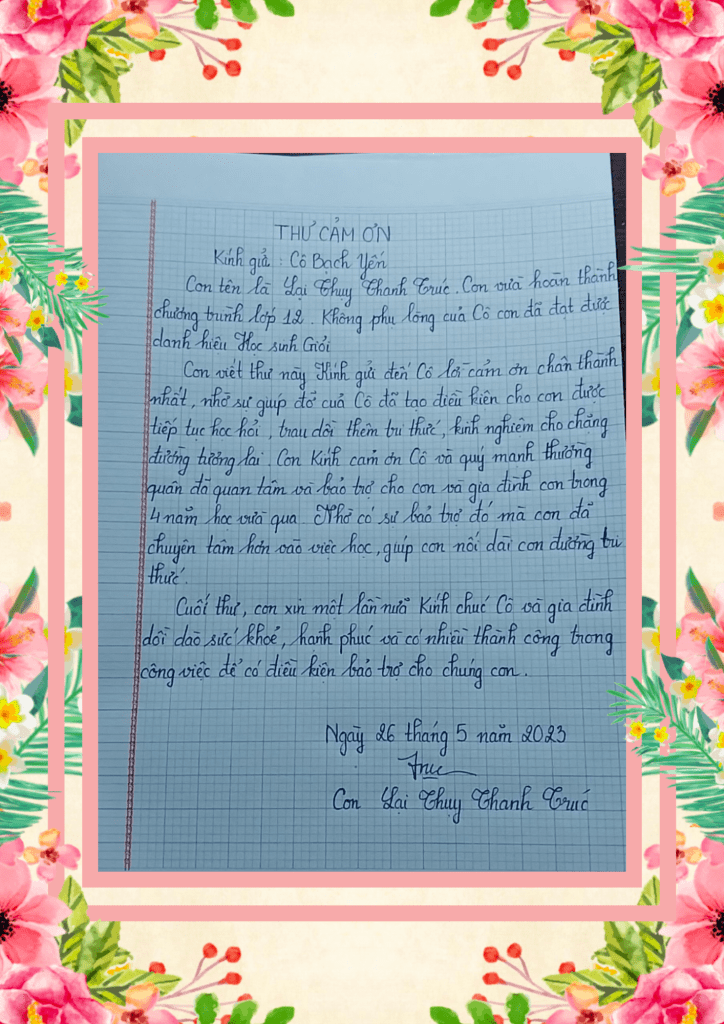 THƯ CẢM ƠN
Kính gửi : Cô Bạch Yến
Con tên là Lại Thụy Thanh Trúc. Con vừa hoàn thành
chương trình lớp 12. Không phụ lòng của Cô con đã đạt được
danh hiệu Học sinh Giỏi
Con viết thư này Kính gửi đến Cô lời cảm ơn chân thành
nhất, nhờ sự giúp đỡ của Cô đã tạo điều kiện cho con được
tiếp tục học hỏi, trau dồi thêm tri thức, kinh nghiệm cho chặng
đường tương lai. Con Kính cảm ơn Cô và quý mạnh thường
quân đã quan tâm và bảo trợ cho con và gia đình con trong
4 năm học vừa qua. Nhờ có sự bảo trợ đó mà con đã
chuyên tâm hơn vào việc học, giúp con nối dài con đường tri
thức.
Cuối thư, con xin một lần nữa Kính chúc Cô và gia đình
dồi dào sức khoẻ, hạnh phúc và có nhiều thành công trong
công việc để có điều kiện bảo trợ cho chúng con.
Ngày 26 tháng 5 năm 2023
Trúc
Con Lại Thụy Thanh Trúc